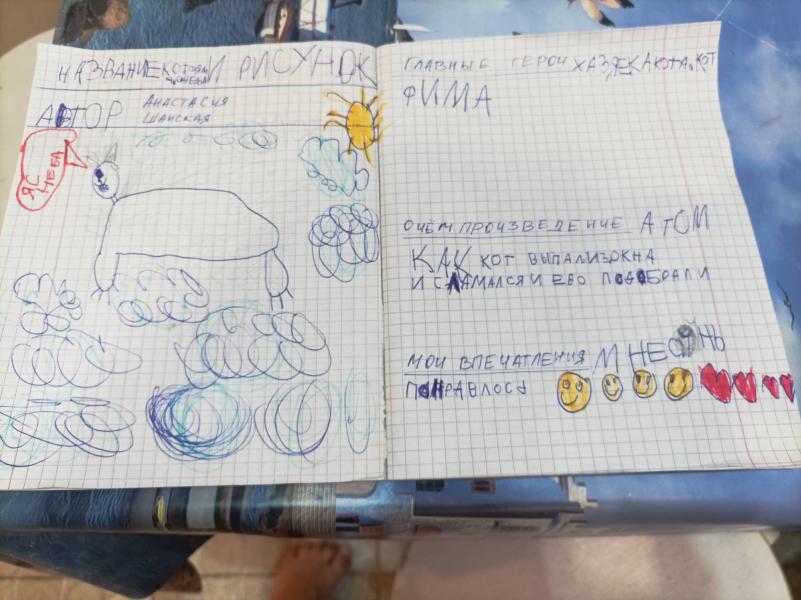 НАЗВАНИЕ КОТ ЯСНЕБА И РИСУНОК
АВТОР АНАСТАСИЯ
ШАНСКАЯ
Я С
НЕБА
ГЛАВНЫЕ ГЕРОИ ХАЗЯЕКАКОТА, КОТ
ФИМА
ОЧЁМ ПРОИЗВЕДЕНИЕ АТОМ
КАК КОТ ВЫПАЛИЗОКНА
И СЛАМАЛСЯ И ЕВО ПОДОБРАЛИ
МОИ ВПЕЧАТЛЕНИЯ МНЕОЧНЬ
ПОНРАВЛОСЬ